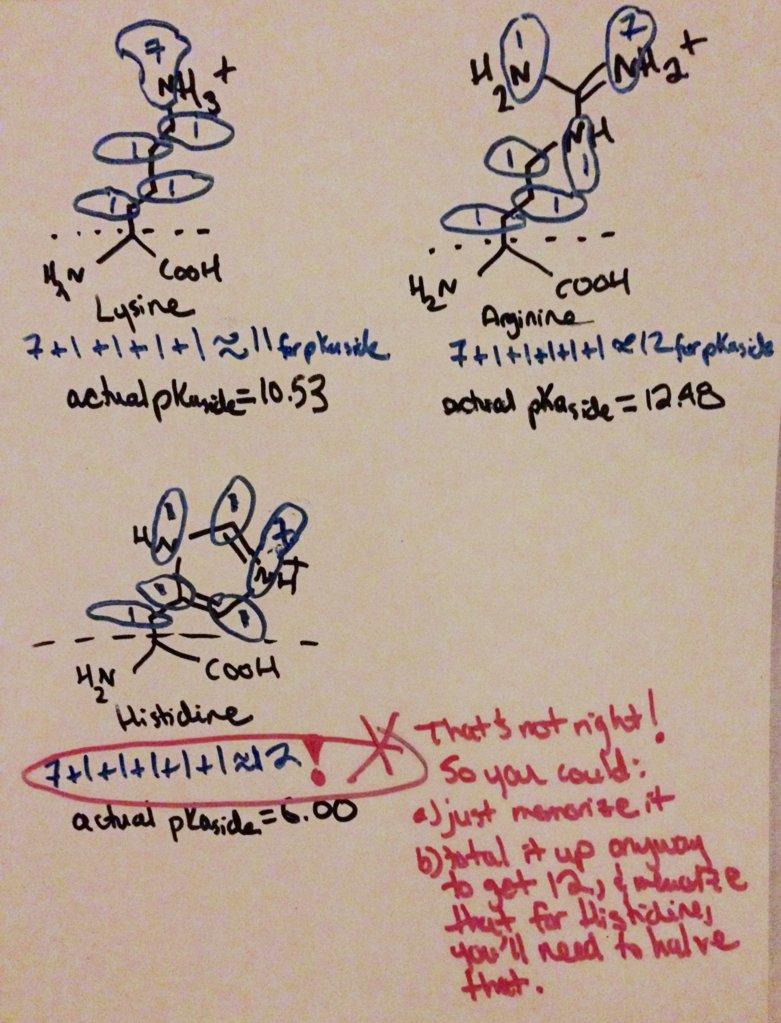 7
NH3+
1
1
1
1
H2N
COOH
Lysine
7+1+1+1+1≈11 for pKaside
actual pKaside=10.53
1
7
H2N
NH2+
NH
1
1
1
1
H2N
COOH
Arginine
7+1+1+1+1+1≈12 for pKaside
actual pKaside=12.48
1
1
7
HN
NH+
1
1
1
H2N
COOH
Histidine
7+1+1+1+1+1≈12 !
actual pKaside=6.00
That's not right!
So you could:
a) just memorize it
b) total it up anyway
to get 12, & memorize
that for Histidine,
you'll need to halve
that.